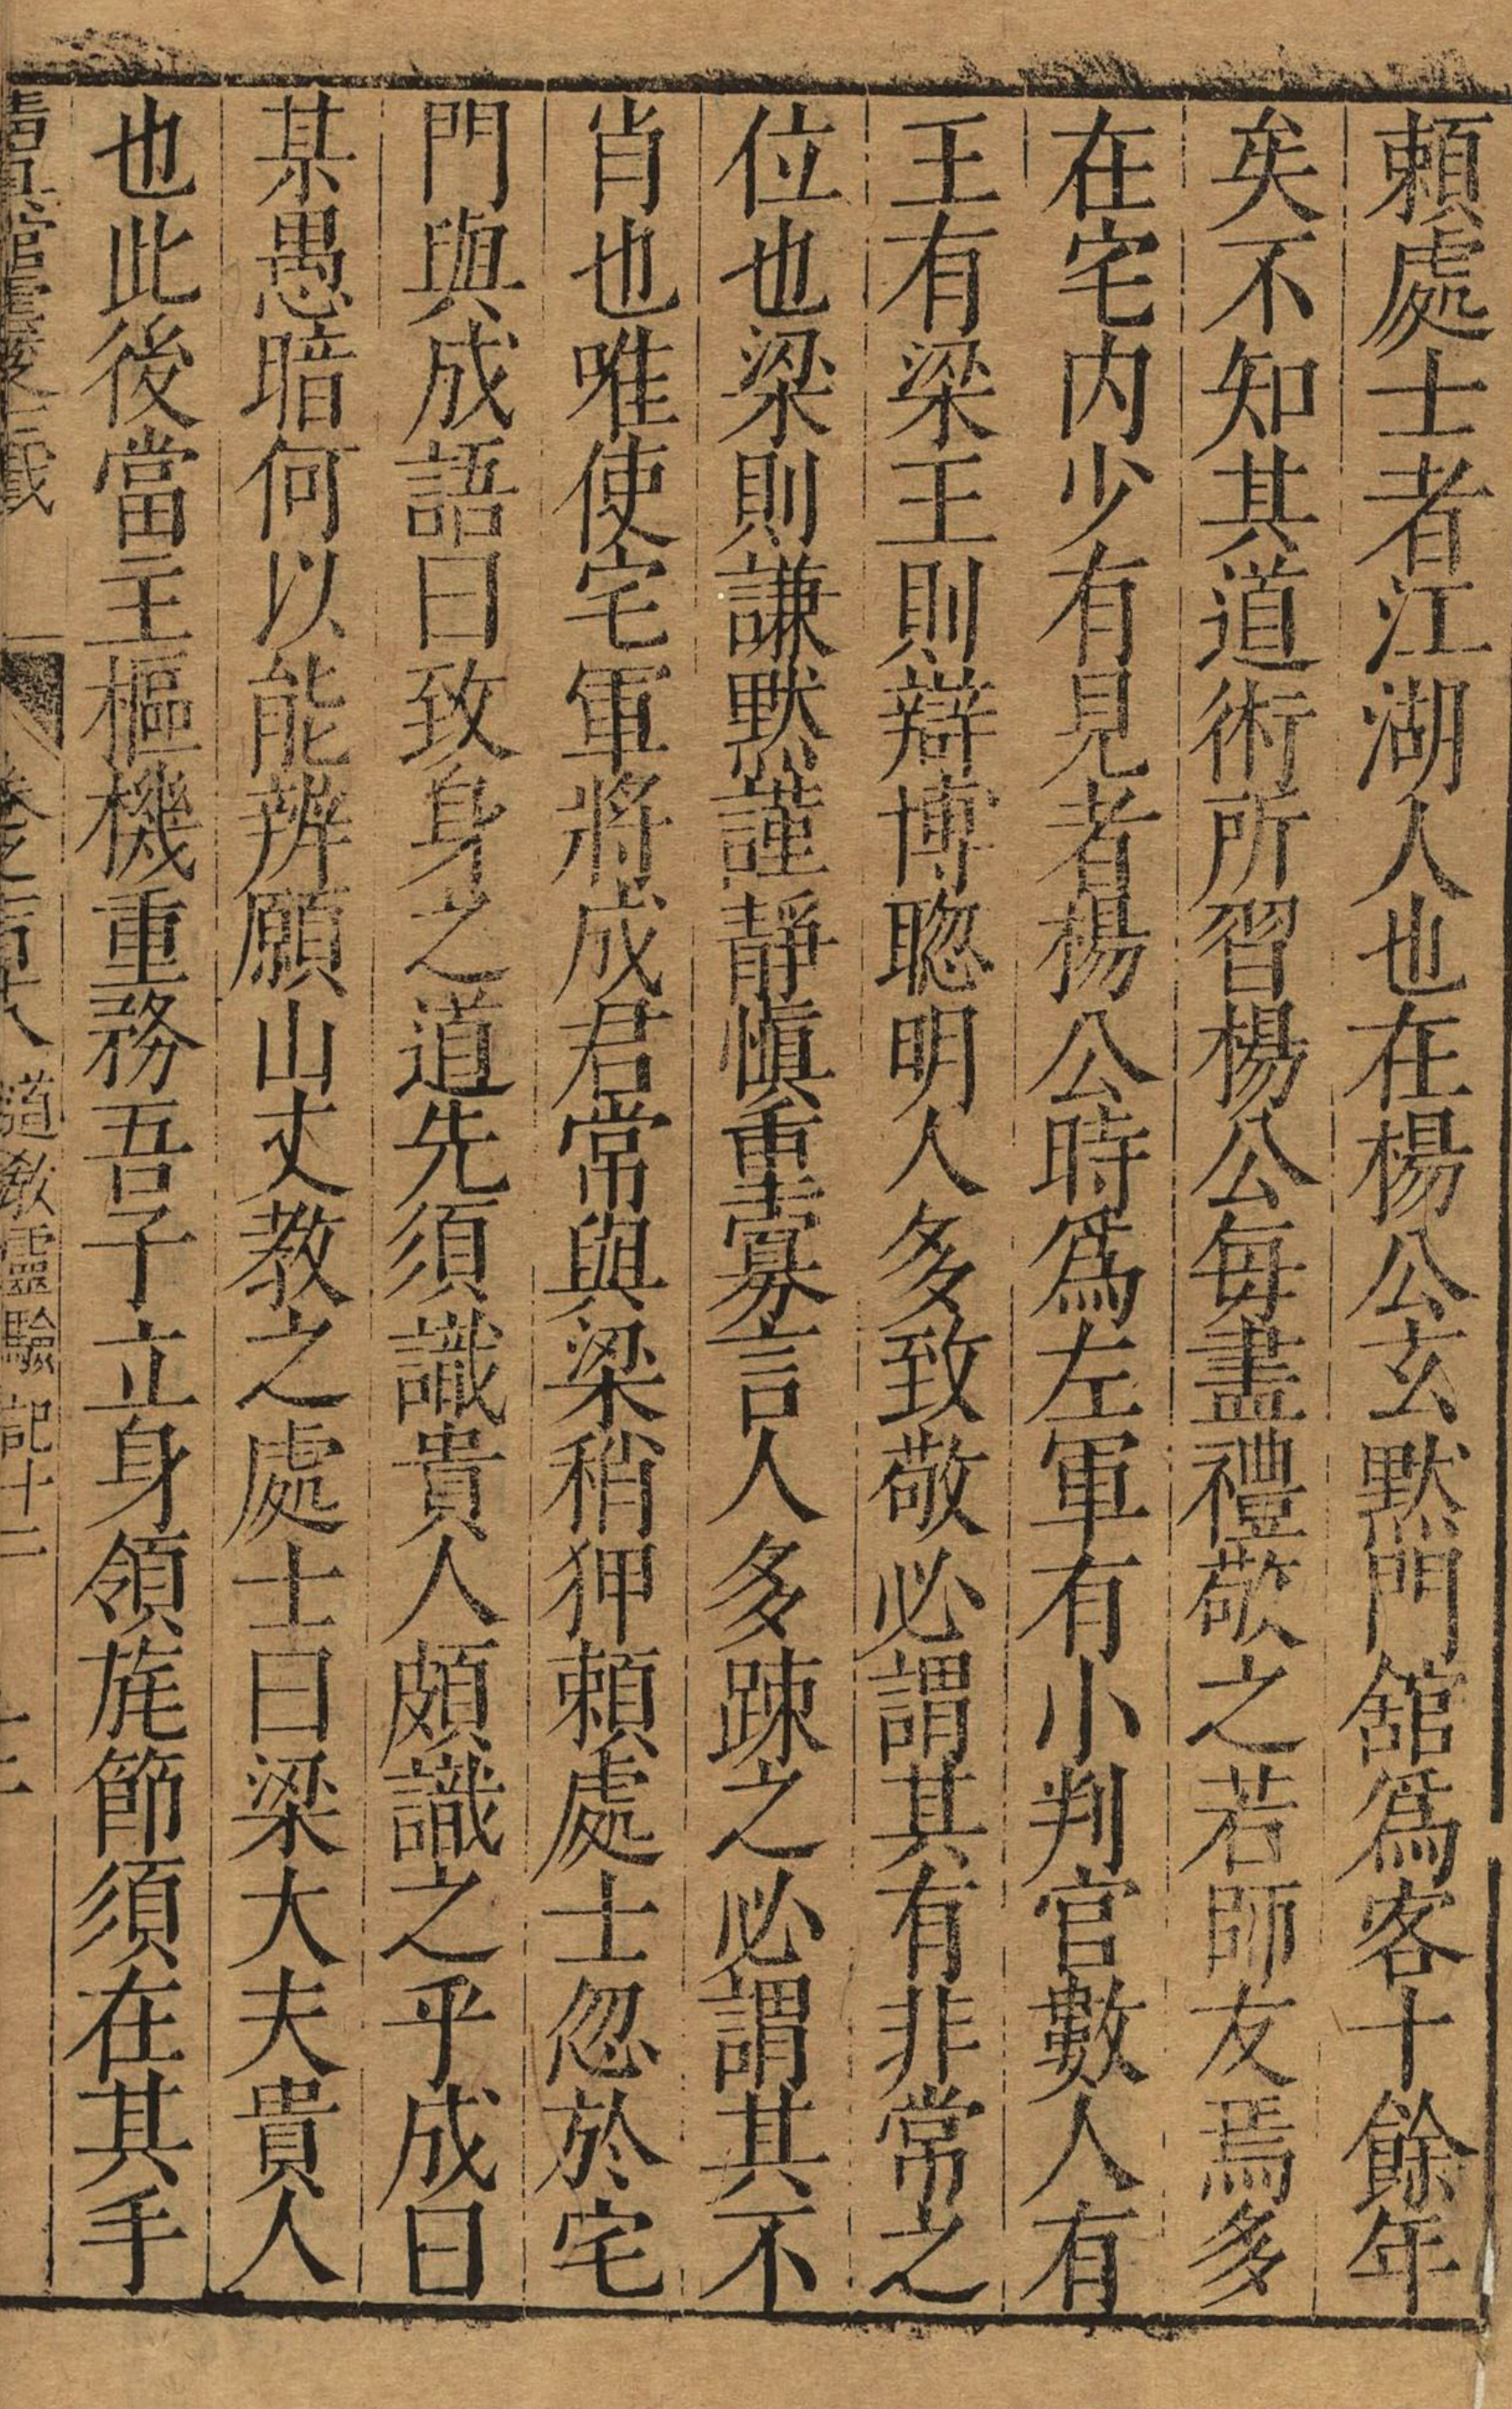 頼處士者江湖人也在楊公玄默門舘爲客十餘年
矣不知其道術所習楊公每盡禮敬之若師友焉多
在宅内少有見者楊公時爲左軍有小判官數人有
王有梁王則辯博聦明人多致敬必謂其有非常之
位也梁則謙默謹靜愼重寡言人多踈之必謂其不
肖也唯使宅軍將成君常與梁稍狎頼處士忽於宅
門與成語曰致身之道先須識貴人頗識之乎成曰
某愚暗何以能辨願山丈教之處士曰梁大夫貴人
也此後當主樞機重務吾子立身領旄節須在其手
道教靈驗記十二